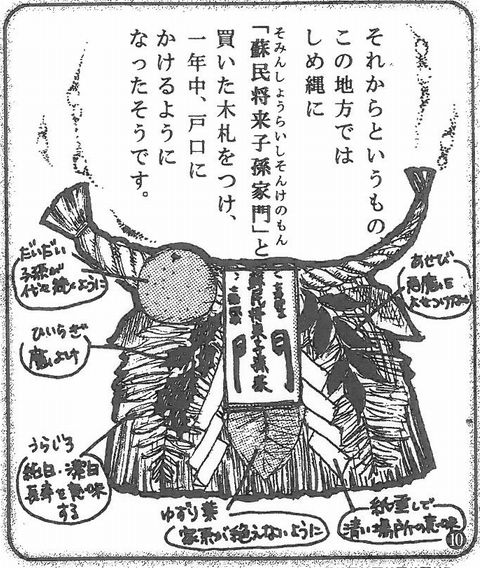 それからというもの
この地方では
しめ縄に
「蘇民将来子孫家門」と
そみんしょうらいしそんけのもん
買いた木札をつけ、
一年中、戸口に
かけるように
なったそうです。
だいだい
子孫が
代々続くように
あせび
悪魔を
よせつけない
ひいらぎ
魔よけ
蘇民将来子孫家
門
うらじろ
純白・潔白
長寿を意味
する
ゆずり葉
家系が絶えないように
紙垂しで
清い場所の意味
10